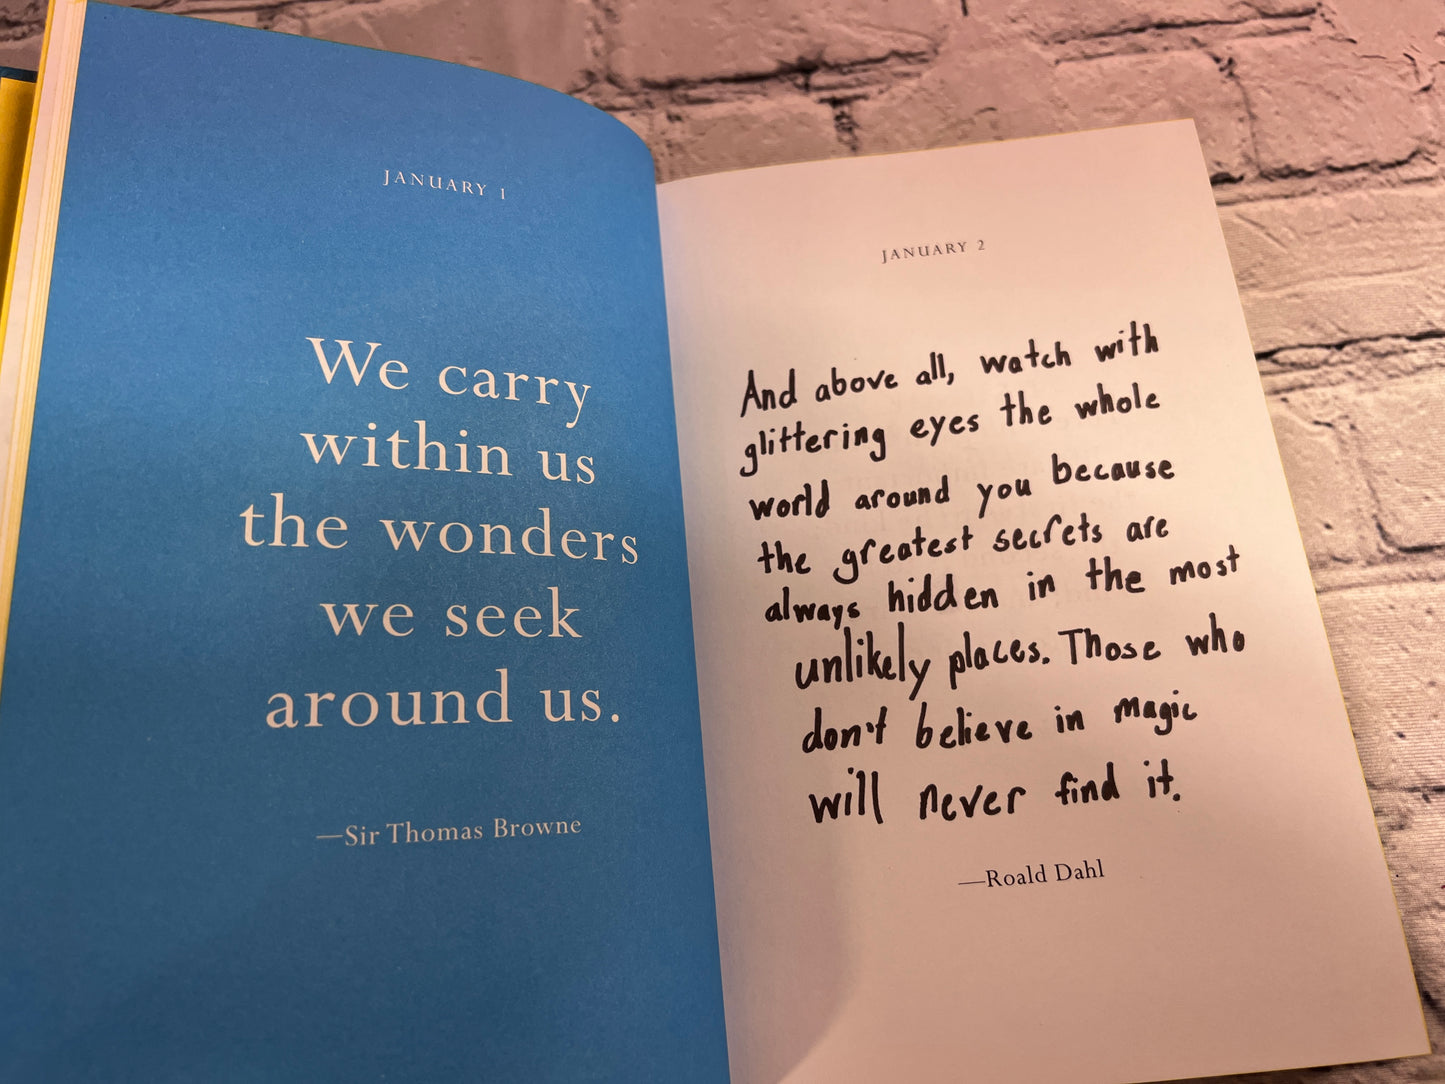 JANUARY 1
We carry
within us
the wonders
we seek
around us.
—Sir Thomas Browne
JANUARY 2
And above all, watch with
glittering eyes the whole
world around you because
the greatest secrets are
always hidden in the most
unlikely places. Those who
don't believe in magic
will never find it.
—Roald Dahl